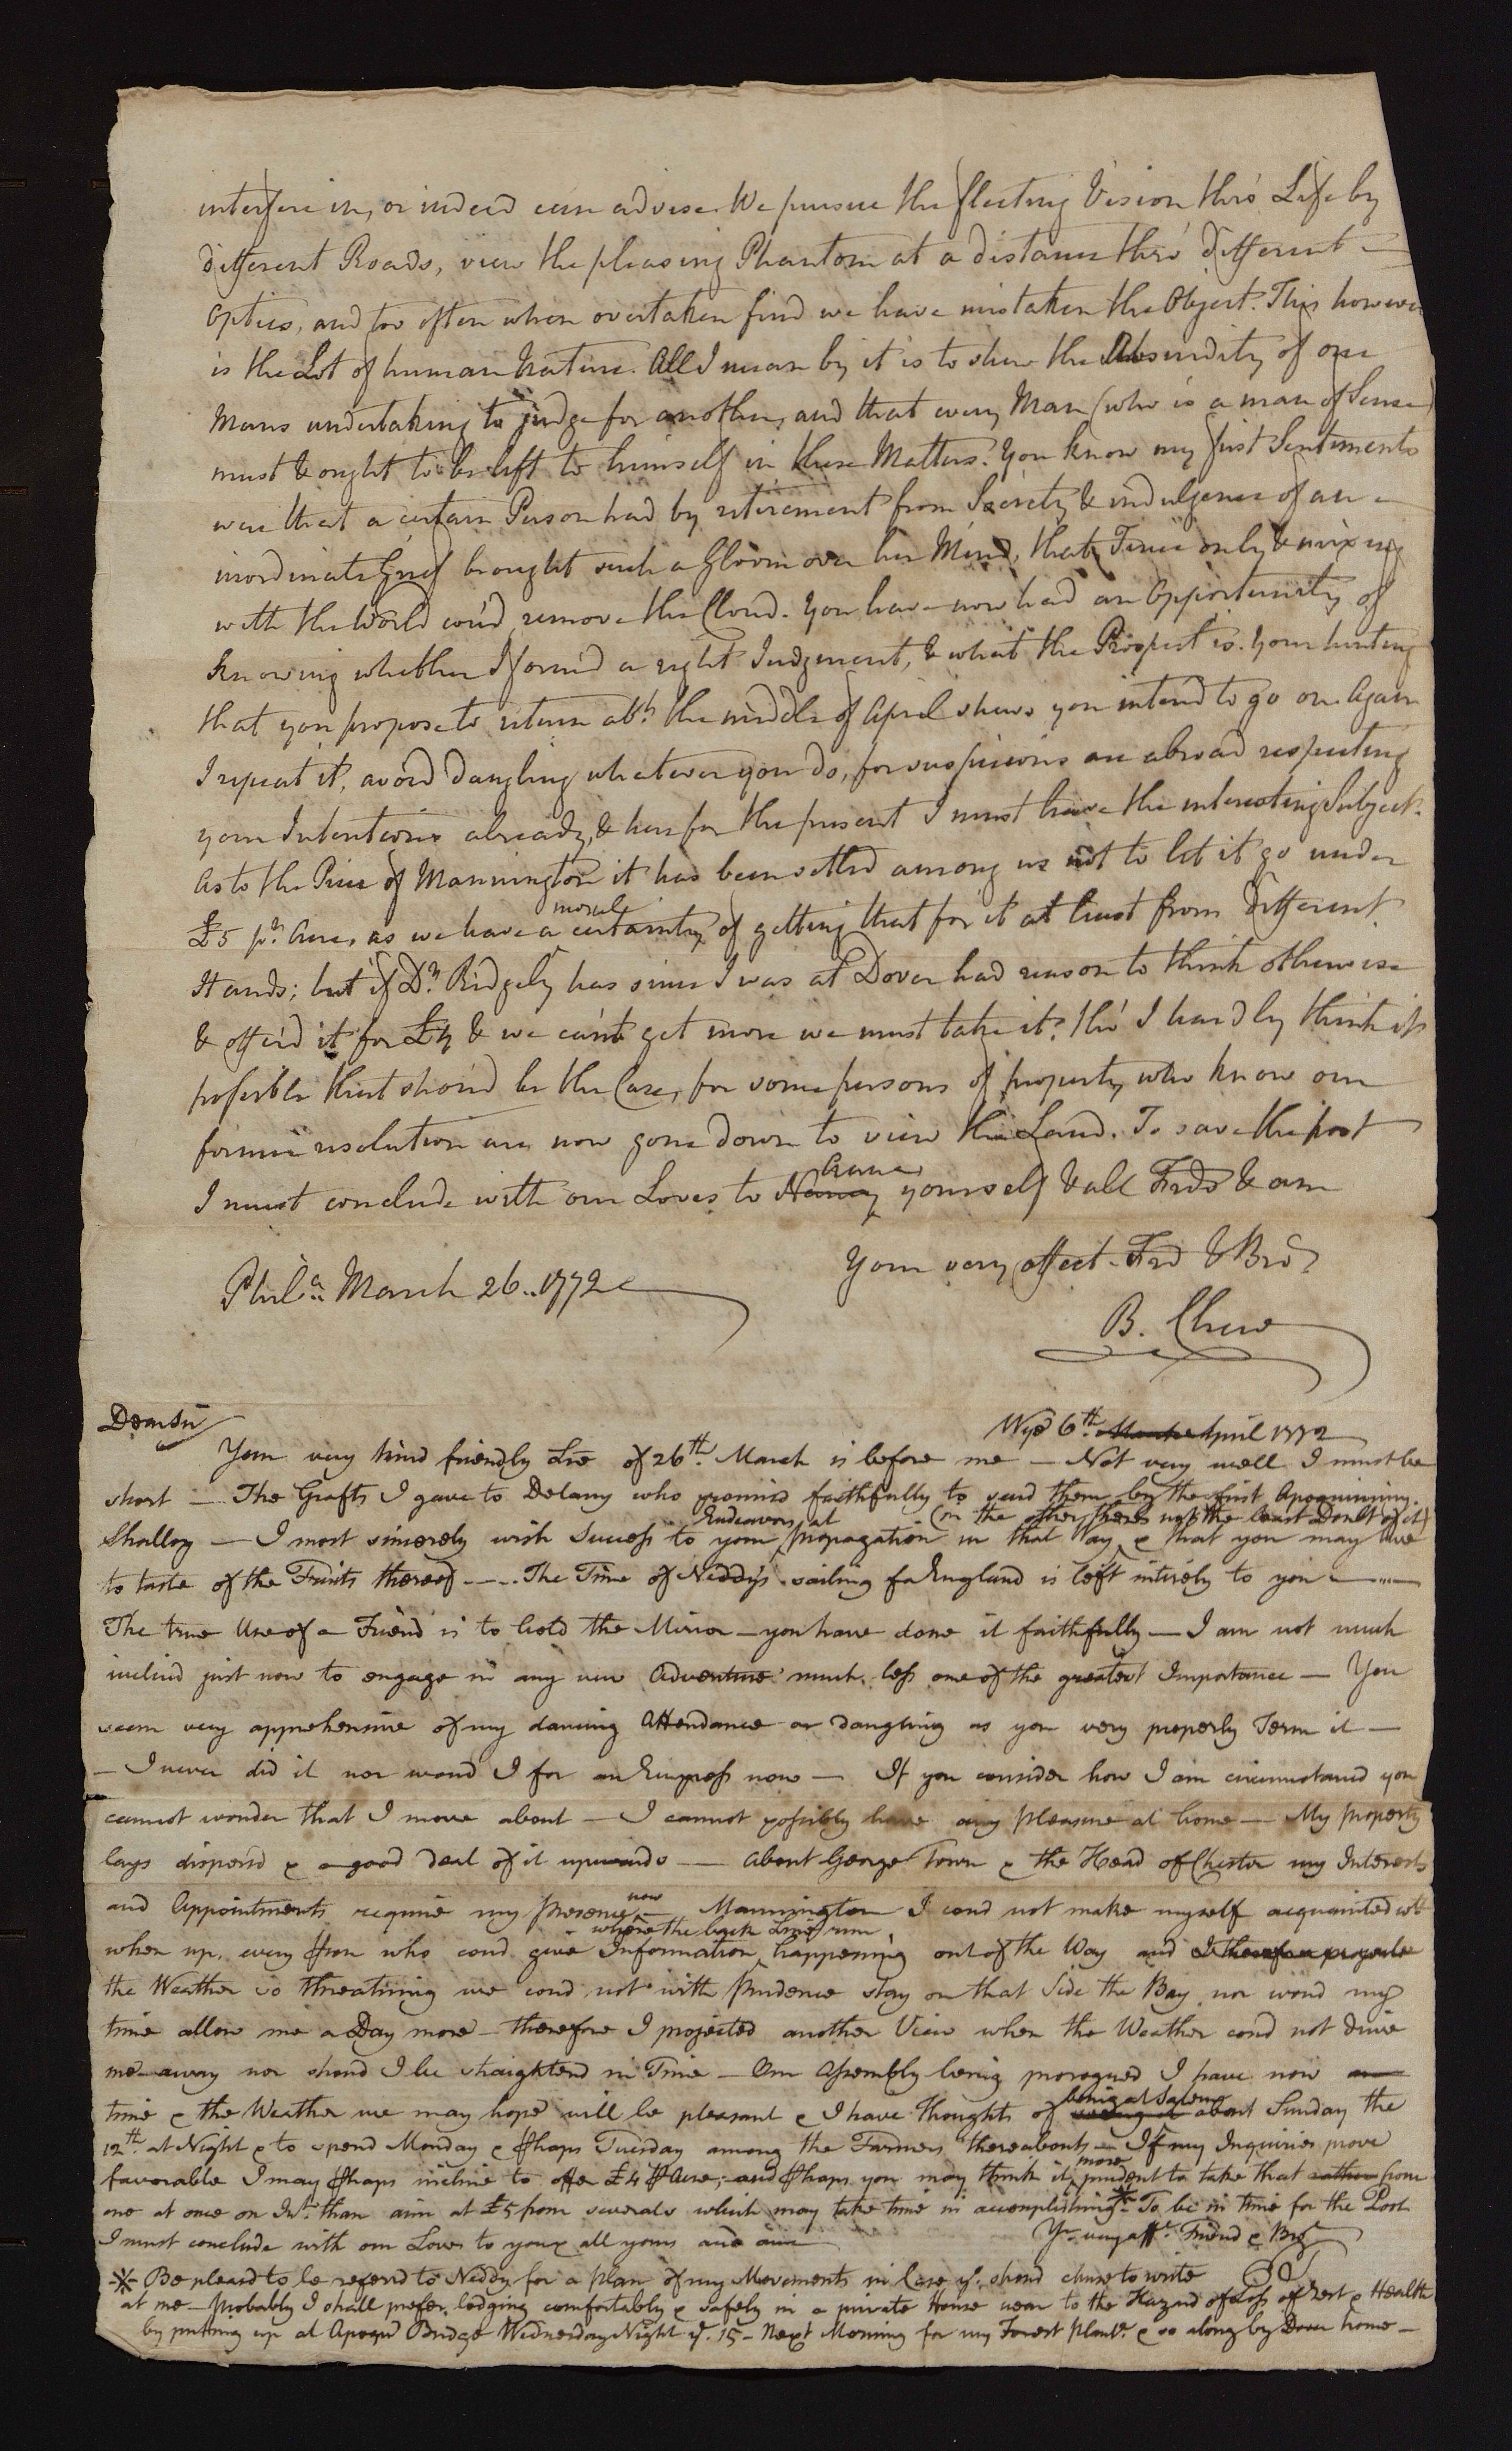 interfere in, or indeed can advise. We pursue the fleeting Vision thro' Life by
different Roads, view the pleasing Phantom at a distance thro' different
Optics, and too often when overtaken find we have mistaken the Object. This however
is the Lot of human Nature. All I mean by it is to shew the Absurdity of one
Mans undertaking to judge for another, and that every Man (who is a man of Sense)
must & ought to be left to himself in these Matters. You know my first Sentiments
were that a certain Person had by retirement from Society & indulgence of an
inordinate Grief brought such a Gloom over her Mind, that Time only & mixing
with the World cou'd remove the Cloud. You have now had an Opportunity of
knowing whether I form'd a right Judgment, & what the Prospect is. Your hinting
that you propose to return abt. the middle of April shews you intend to go on Again
I repeat it, avoid Dangling whatever you do, for suspicions are abroad respecting
your Intentions already, & here for the present I must leave the interesting Subject.
As to the Price of Mannington it has been settled among us not to let it go under
£5 pr. Acre, as we have a moral certainty of getting that for it at least from different
Hands; but if Dr. Ridgely has since I was at Dover had reason to think otherwise
& offer'd it for £4 & we can't get more we must take it. tho' I hardly think it
possible that shou'd be the Case, for some persons of property who know our
former resolution are now gone down to view the Land. To save the post
I must conclude with our Loves to Nancy yourself & all Frds & am
Your very affect. Frd & Bror
Phila. March 26.. 1772
B. Chew
Dear Sir
Wye 6th. March April 1772
Your very kind friendly Lre of 26th. March is before me — Not very well I must be
short — The Grafts I gave to Delany who promisd faithfully to send them by the first Apoquiniminy
Shallop — I most sincerely wish Success to your Endeavors at propagation in that Way (in the other there's not the least Doubt of it) & that you may live
to taste of the Fruits thereof —.. The Time of Neddy's sailing for England is left intirely to you —
The true Use of a Friend is to hold the Mirror — you have done it faithfully — I am not much
inclind just now to engage in any new Adventure much less one of the greatest Importance — You
seem very apprehensive of my dancing Attendance or dangling as you very properly Term it —
— I never did it nor woud I for an Empress now — If you consider how I am circumstanced you
cannot wonder that I move about — I cannot possibly have any pleasure at home — My property
lays dispersd & a good Deal of it upwards — about George Town & the Head of Chester my Interests
and Appointments require my presence now — Mannington I coud not make myself acquainted wth
when up, every pson who coud give Information where the back Lines run happening out of the Way and I therefore
the Weather so threatning we coud not with Prudence stay on that Side the Bay nor woud my
time allow me a Day more — therefore I projected another View when the Weather coud not drive
me away nor shoud I be straightend in Time — Our Assembly being prorogued I have now
time & the Weather we may hope will be pleasant & I have Thoughts of being at Salem about Sunday the
12th. at Night & to spend Monday & phaps Tuesday among the Farmers thereabouts — If my Inquiries prove
favorable I may phaps incline to offer £4 p Acre; and phaps you may think it more prudent to take that rather from
one at once on Int. than aim at £5 from severals which may take time in accomplishing * To be in time for the Post
I must conclude with our Loves to you & all yours and am
Yr. very afft. Friend & Bror
* Be pleasd to be referd to Neddy for a plan of my Movements in Case yo. shoud chuse to write
at me — probably I shall prefer lodging comfortably & safely in a private House near to the Hazard of Loss of Rest & Health
by putting up at Apoqd Bridge Wednesday Night ye. 15 — Next Morning for my Forest Plantn. & so along by Dover home —